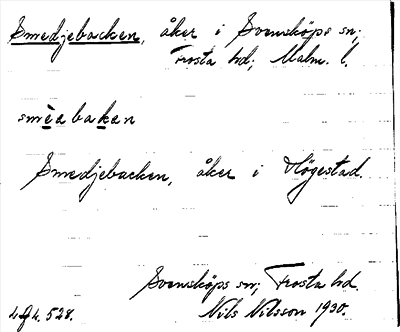 Smedjebacken, åker i Svensköps sn;
Frosta hd; Malm. l.
smèabakan
Smedjebacken, åker i Högestad.
Svensköps sn; Frosta hd.
Nils Nilsson 1930.
4g4. 528.